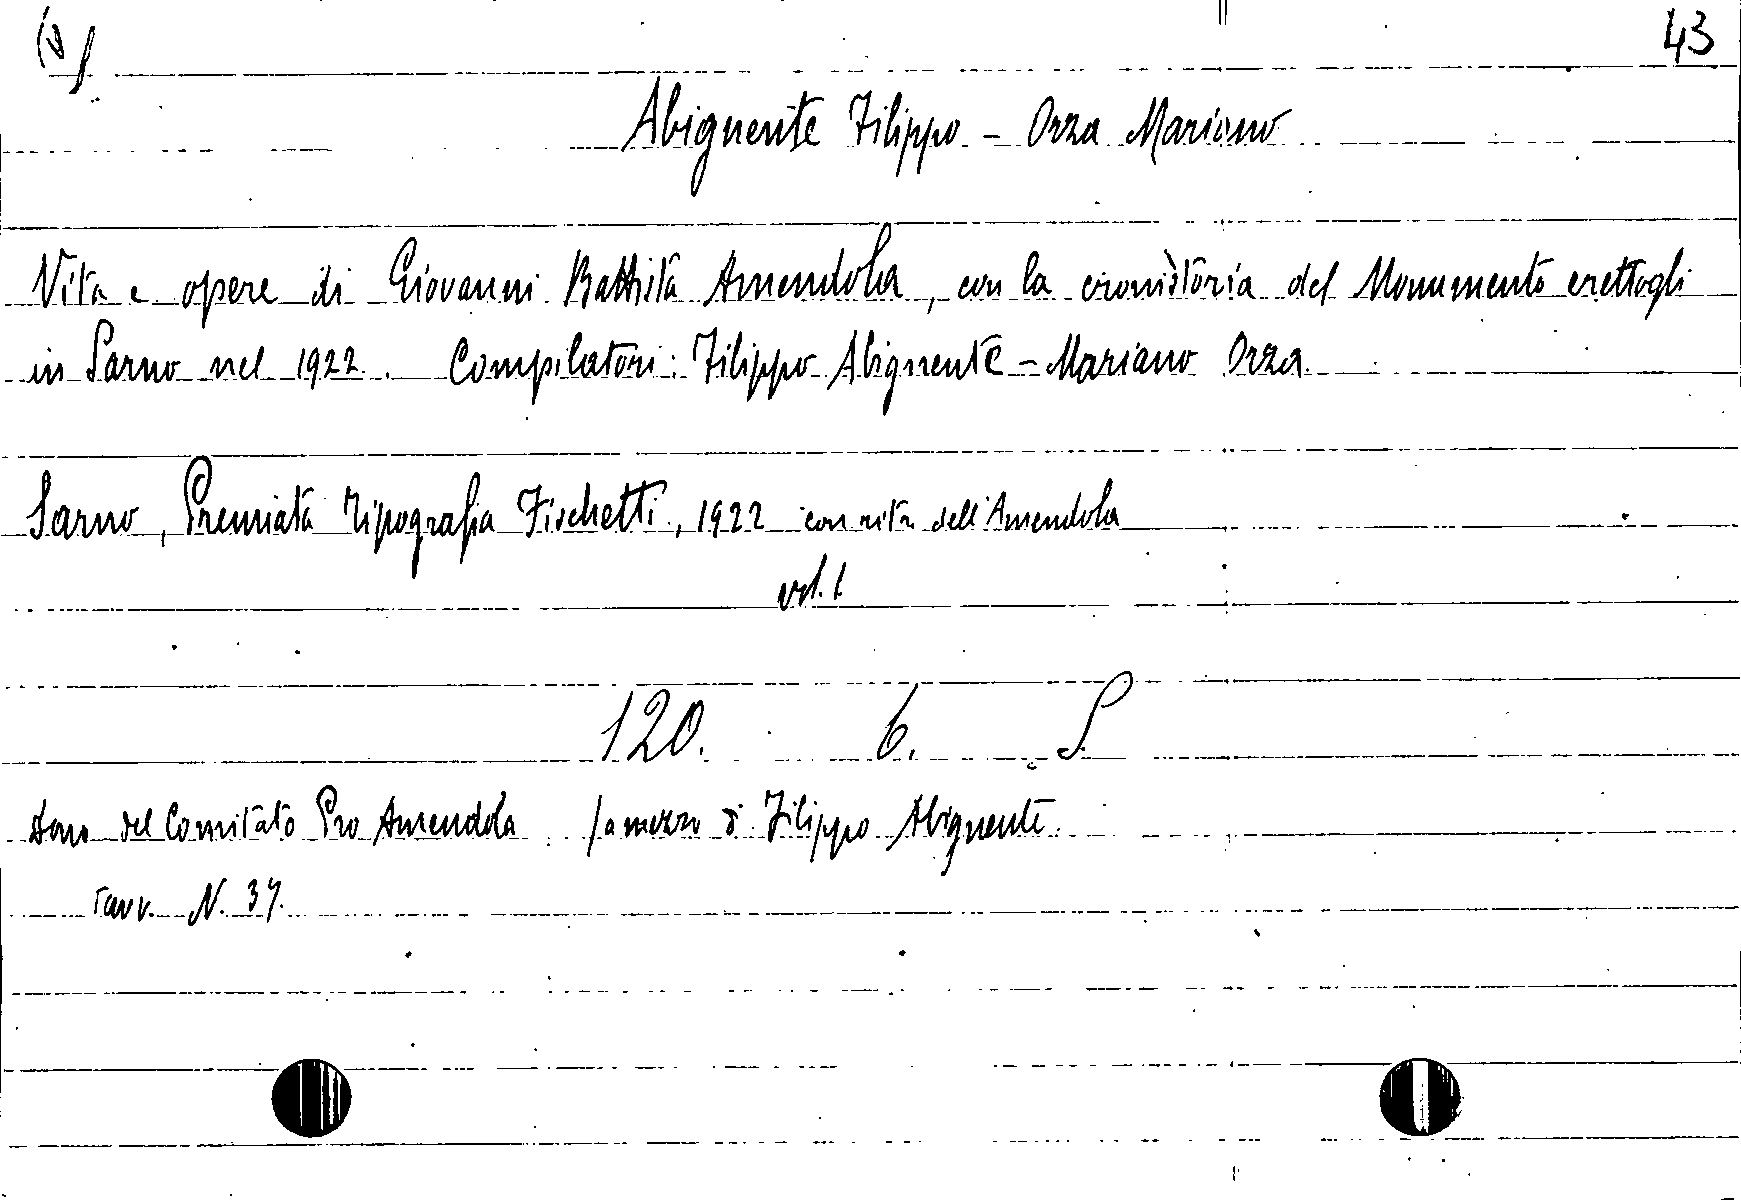 43
Abignente Filippo - Orza Mariano
Vita e opere di Giovanni Battista Amendola, con la cronistoria del Monumento erettogli
in Sarno nel 1922. Compilatori: Filippo Abignente - Mariano Orza
Sarno, Premiata Tipografia Fischetti, 1922 con ritr. dell'Amendola
vol. 1
120. 6. S.
Dono del Comitato Pro Amendola / a mezzo di Filippo Abignente
N. 37.